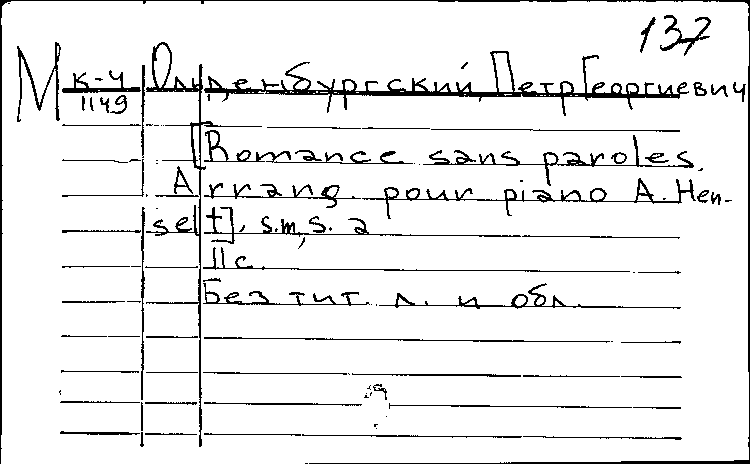 137
М К-4 Ольденбургский, Петр Георгиевич
1149
[Romance sans paroles.
Arrang. pour piano A. Hen-
selt], s.m, s. a
11 c.
Без тит. л. и обл.